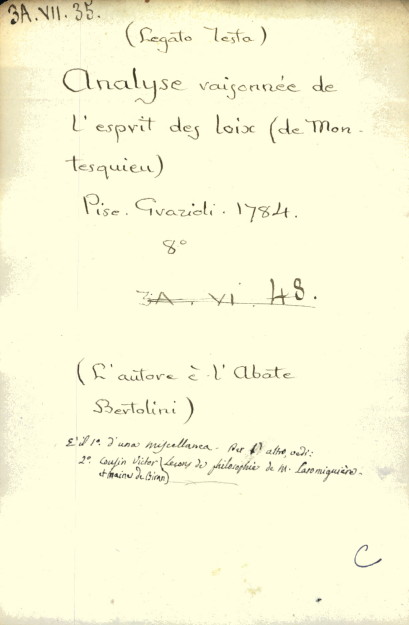 3A.VII.35.
(Legato Testa)
Analyse raisonnée de
l'esprit des loix (de Mon-
tesquieu)
Pise. Grazioli. 1784.
8°
3A. VI. 48.
(L'autore è l'Abate
Bertolini)
E' il 1° d'una miscellanea. Per altro, vedi:
2° Cousin Victor (Leçons de philosophie de M. Laromiguière.
et Maine de Biran)
C